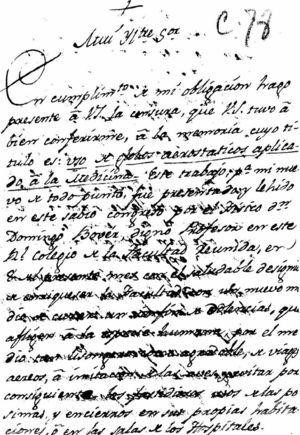 Muy Yltre Sor
C. 78
En cumplimto. de mi obligacion hago
presente á VS. la censura, que VS. tuvo á
bien conferirme, á la memoria, cuyo ti-
tulo es: uso de globos aerostaticos aplica-
do á la Medicina. Este trabajo, pr. mi nue-
vo de todo punto, fue presentado y lehido
en este sabio congreso por el Socio dn.
Domingo Bover, digno Profesor en este
Rl. Colegio de la Facultad reunida, en
el presente mes con el saludable designio
de enriquecer la Facultad con un nuevo me-
dio de curar un sinfin de dolencias, que
afligen á la especie humana, por el me-
dio tan agradable, de viages
aereos, á imitacion de las aves, y evitar por
consiguiente las
simas, y encierros en sus propias habita-
ciones, ó en las salas de los Hospitales.